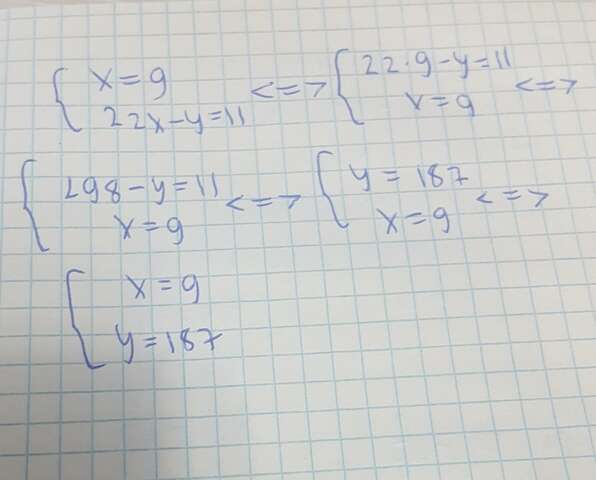 { x = 9 <=> { 22·9 - y = 11 <=>
{ 22x - y = 11 { x = 9
{ 198 - y = 11 <=> { y = 187 <=>
{ x = 9 { x = 9
{ x = 9
{ y = 187